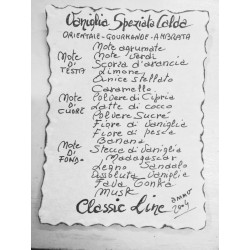 Vaniglia Speziata Calda
ORIENTALE - GOURMANDE - AMBRATA
Note agrumate
NOTE DI TESTA
Note verdi
Scorza d'arancia
Limone
Anice stellato
Caramello
NOTE DI CUORE
Polvere di Cipria
Latte di cocco
Polvere Sucré
Fiore di vaniglia
Fiore di pesca
Banana
NOTE DI FONDO
Stecca di Vaniglia
Madagascar
Legno Sandalo
Assoluta Vaniglia
Fava Tonka
Musk
Classic Line
ANNO 2004